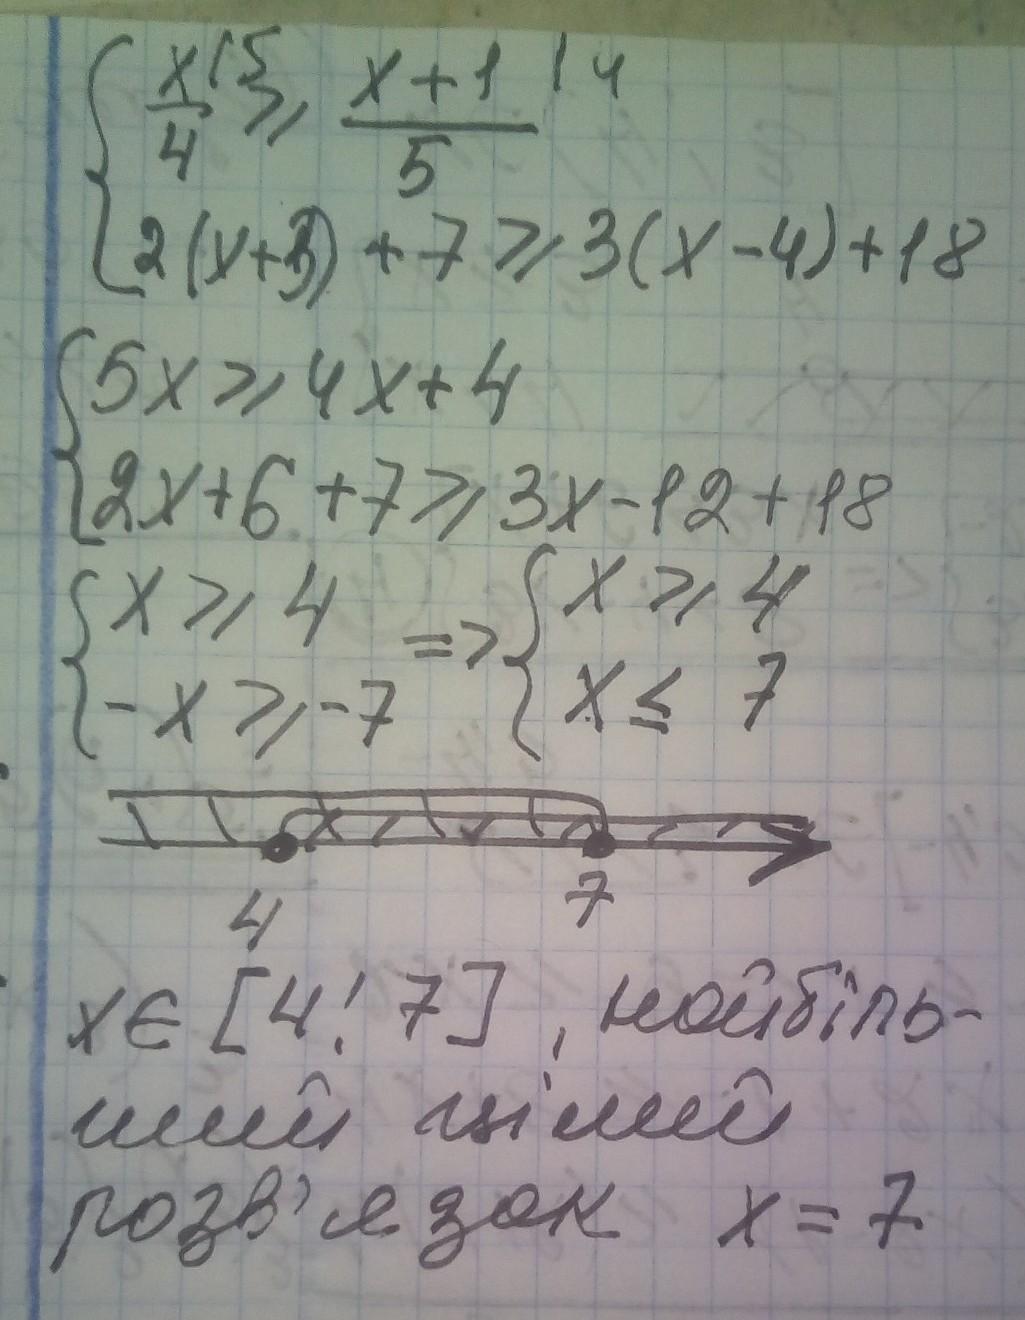 x/4 |5 ≥ (x+1)/5 |4
2(x+3) + 7 ≥ 3(x-4)+18
5x ≥ 4x+4
2x+6 +7 ≥ 3x-12+18
x ≥ 4 => x ≥ 4
-x ≥ -7 x ≤ 7
4 7
x є [4; 7], найбіль-
ший цілий
розв'язок x = 7